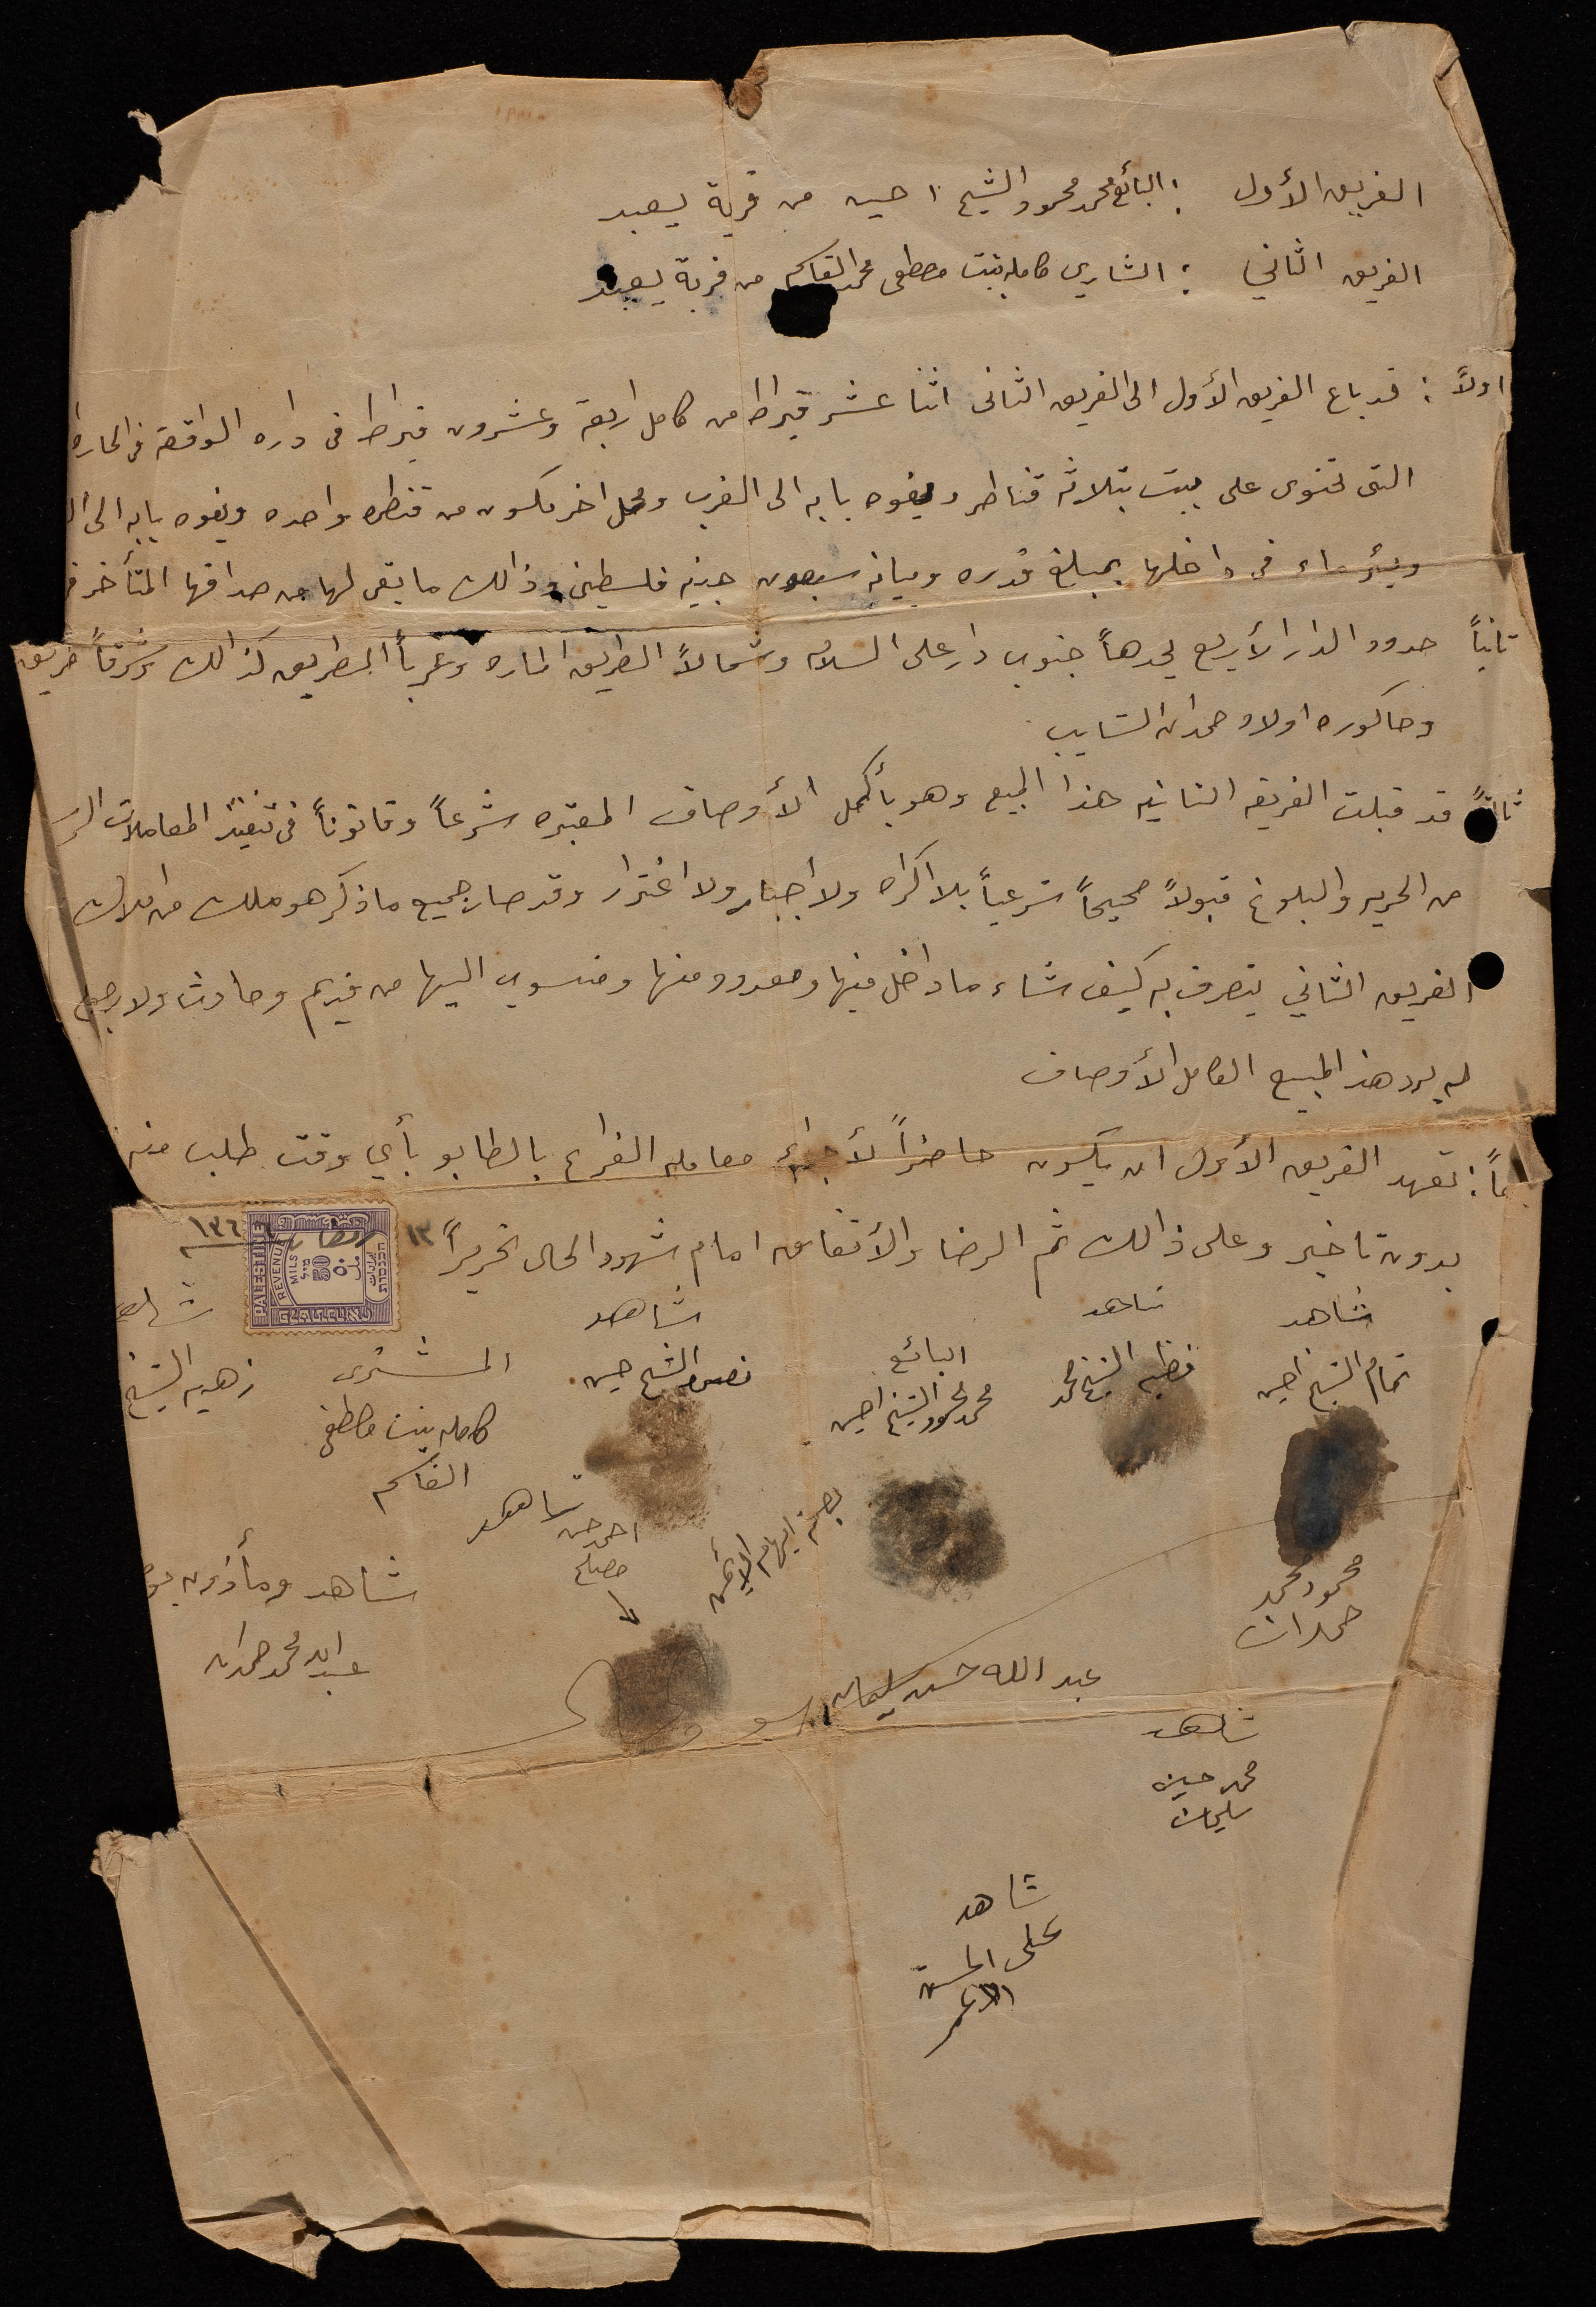 الفريق الأول : البائع محمد محمود الشيخ احمد من قرية يعبد
الفريق الثاني : الشاري كامله بنت مصطفى محمد القاسم من قرية يعبد
اولاً : قد باع الفريق الأول الى الفريق الثانى اثنا عشر قيراط من كامل اربعة وعشرون قيراط فى داره الواقعة فى الحاره
التى تحتوى على بيت بتلاثة قناطر ويفوه بابه الى الغرب ومحل اخر مكون من قنطره واحده ويفوه بابه الى ال
وبئر ماء فى داخلها بمبلغ قدره وبيانه سبعون جينه فلسطينى وذالك ما بقى لها من صداقها المتأخر فى
ثانياً حدود الدار الأربع يحدهاً جنوب دار على السلامه وشمالاً الطريق الماره وغرباً الطريق كذالك وشرقاً طريق
وحاكوره اولاد حمدان الشايب
ثالثاً قد قبلت الفريقه الثانيه هذا المبيع وهو بأكمل الأوصاف المعتبره شرعاً وقانوناً فى تنفيذ المعاملات الشر
من الحريه والبلوغ قبولاً صحيحاً شرعياً بلا اكراه ولا اجبار ولا اغترار وقد صار جميع ما ذكر هو ملك من املاك
الفريق الثاني يتصرف به كيف شاء ما داخل فيها ومعدود منها ومنسوب اليها من قديم وحادث ولا رجوع
له يرد هذا المبيع الكامل الأوصاف
عاً : تعهد الفريق الأول ان يكون حاضراً لأجراء معاملة الفراغ بالطابو بأي وقت طلب منه
بدون تاخير وعلى ذالك تم الرضا والأتفاق امام شهود الحال تحريراً ١٣ رمضان ١٣٦
PALESTINE
REVENUE
MILS
50
מיל
הכנסות
شاهد
تمام الشيخ احمد
شاهد
فطيم الشيخ محمد
البائع
محمد محمود الشيخ احمد
شاهد
الشيخ حسين
المشترى
كامله بنت مصطفى
القاسم
شاهد
زهديه الشيخ
محمود محمد
حمدان
بصمة ابهام الأيمن
شاهد
احمد حسن
مصلح
شاهد ومأذون
عبد الله محمد حمدان
عبد الله حسن سليمان
شاهد
محمد حسين
سليمان
شاهد
على الحسن
الاعمر